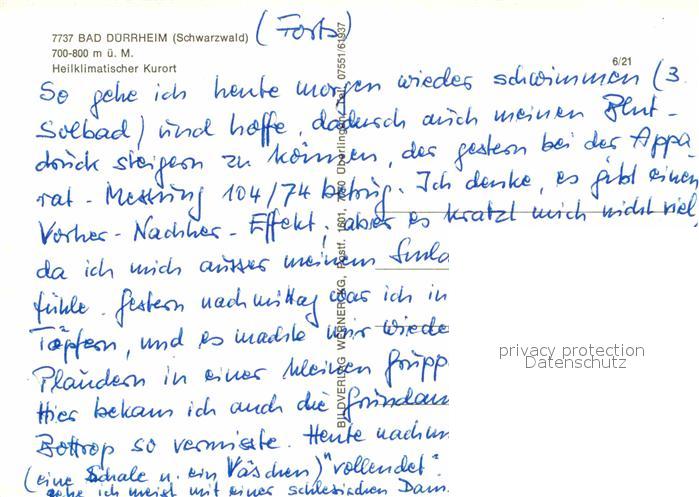 7737 BAD DÜRRHEIM (Schwarzwald)
700-800 m ü. M.
Heilklimatischer Kurort
(Forts)
6/21
So gehe ich heute morgen wieder schwimmen (3.
Solbad) und hoffe, dadurch auch meinen Blut-
druck steigern zu können, der gestern bei der Appa
rat-Messung 104/74 betrug. Ich denke, es gibt einen
Vorher-Nachher-Effekt, aber es kratzt mich nicht viel,
da ich mich ausser meinem
fühle. Gestern nachmittag war ich in
Töpfern, und es machte mir wiede
Plaudern in einer kleinen Grupp
Hier bekam ich auch die
Bottrop so vermisste. Heute nachm
(eine Schale u. ein Väschen) "vollendet".
gehe ich meist mit einer schlesischen Dam
BILDVERLAG WERNER CKG, Postf. 1601, 7770 Überlingen, Tel. 07551/61937
privacy protection
Datenschutz